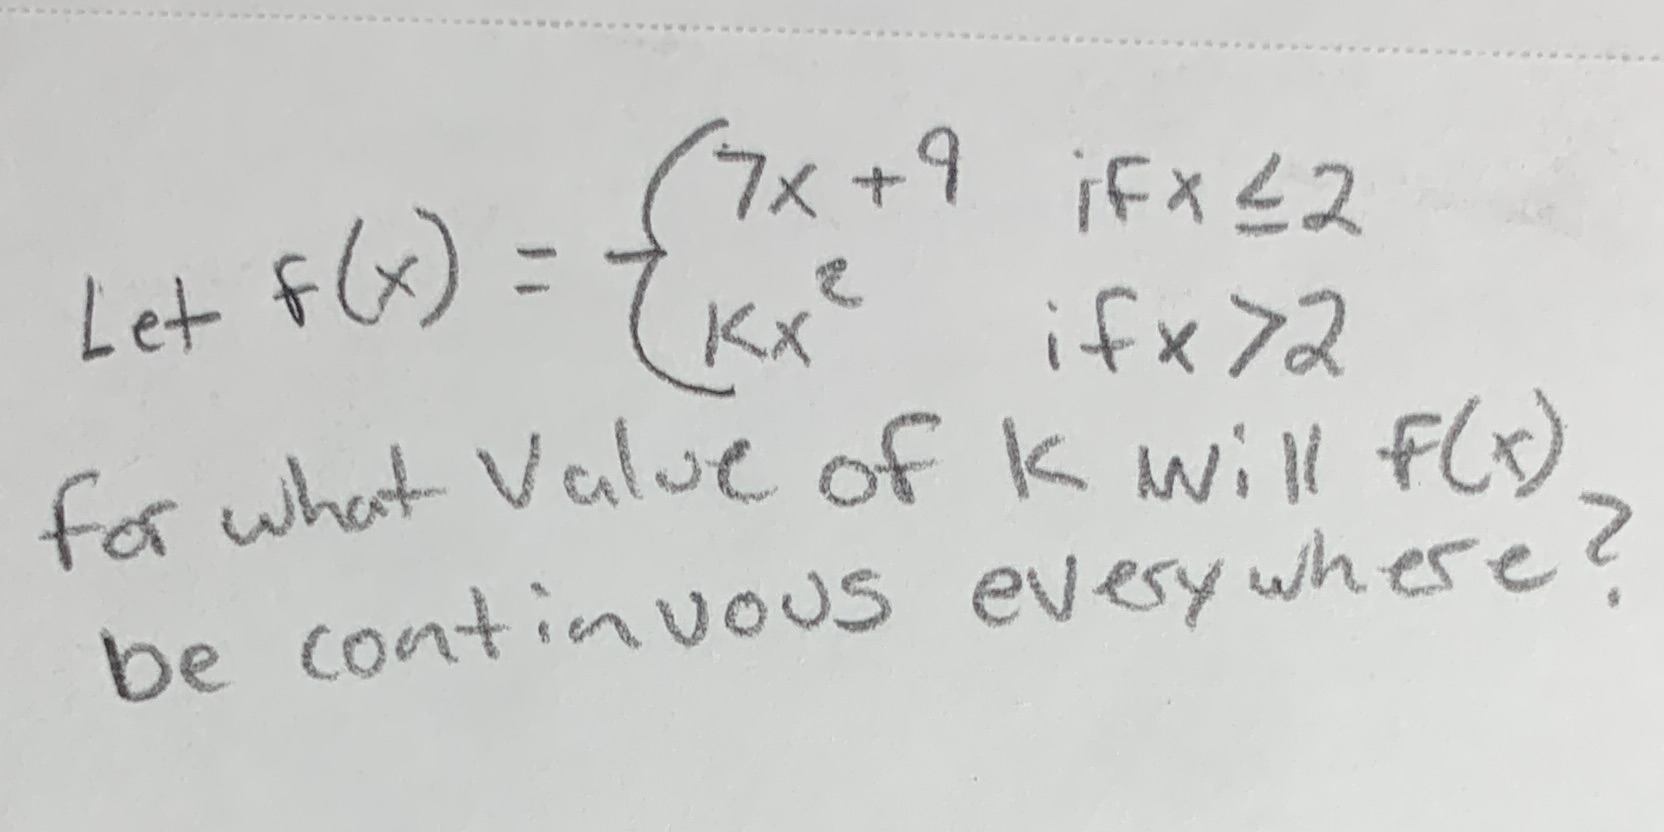 Let f(x) = { 7x + 9 if x ≤ 2
Kx² if x > 2
for what Value of K will f(x)
be continuous everywhere?